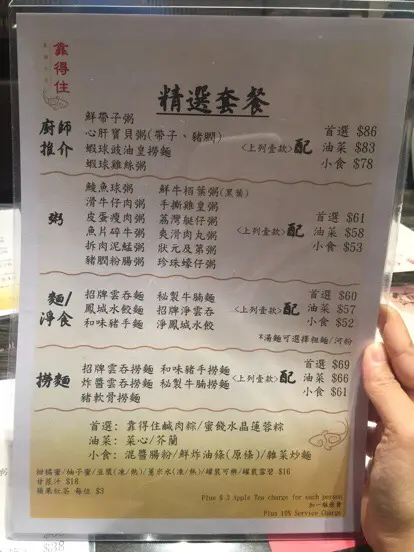 靠得住
精選套餐
廚師推介
鮮帶子粥
心肝寶貝粥(帶子、豬膶)
蝦球豉油皇撈麵
蝦球雞絲粥
<上列壹款>配
首選 $86
油菜 $83
小食 $78
粥
鯪魚球粥 鮮牛栢葉粥(黑葉)
滑牛仔肉粥 手撕雞皇粥
皮蛋瘦肉粥 荔灣艇仔粥
魚片碎牛粥 爽滑肉丸粥
拆肉泥鯭粥 狀元及第粥
豬膶粉腸粥 珍珠蠔仔粥
<上列壹款>配
首選 $61
油菜 $58
小食 $53
麵/淨食
招牌雲吞麵 秘製牛腩麵
鳳城水餃麵 招牌淨雲吞
和味豬手麵 淨鳳城水餃
<上列壹款>配
首選 $60
油菜 $57
小食 $52
*湯麵可選擇粗麵/河粉
撈麵
招牌雲吞撈麵 和味豬手撈麵
炸醬雲吞撈麵 秘製牛腩撈麵
豬軟骨撈麵
<上列壹款>配
首選 $69
油菜 $66
小食 $61
首選: 靠得住鹹肉粽/蜜餞水晶蓮蓉粽
油菜: 菜心/芥蘭
小食: 混醬腸粉/鮮炸油條(原條)/雜菜炒麵
柑橘蜜/柚子蜜/豆漿(凍/熱)/薏米水(凍/熱)/罐裝可樂/罐裝雪碧 $16
甘蔗汁 $18
蘋果紅茶 每位 $3
Plus $ 3 Apple Tea charge for each person
加一服務費
Plus 10% Service Charge